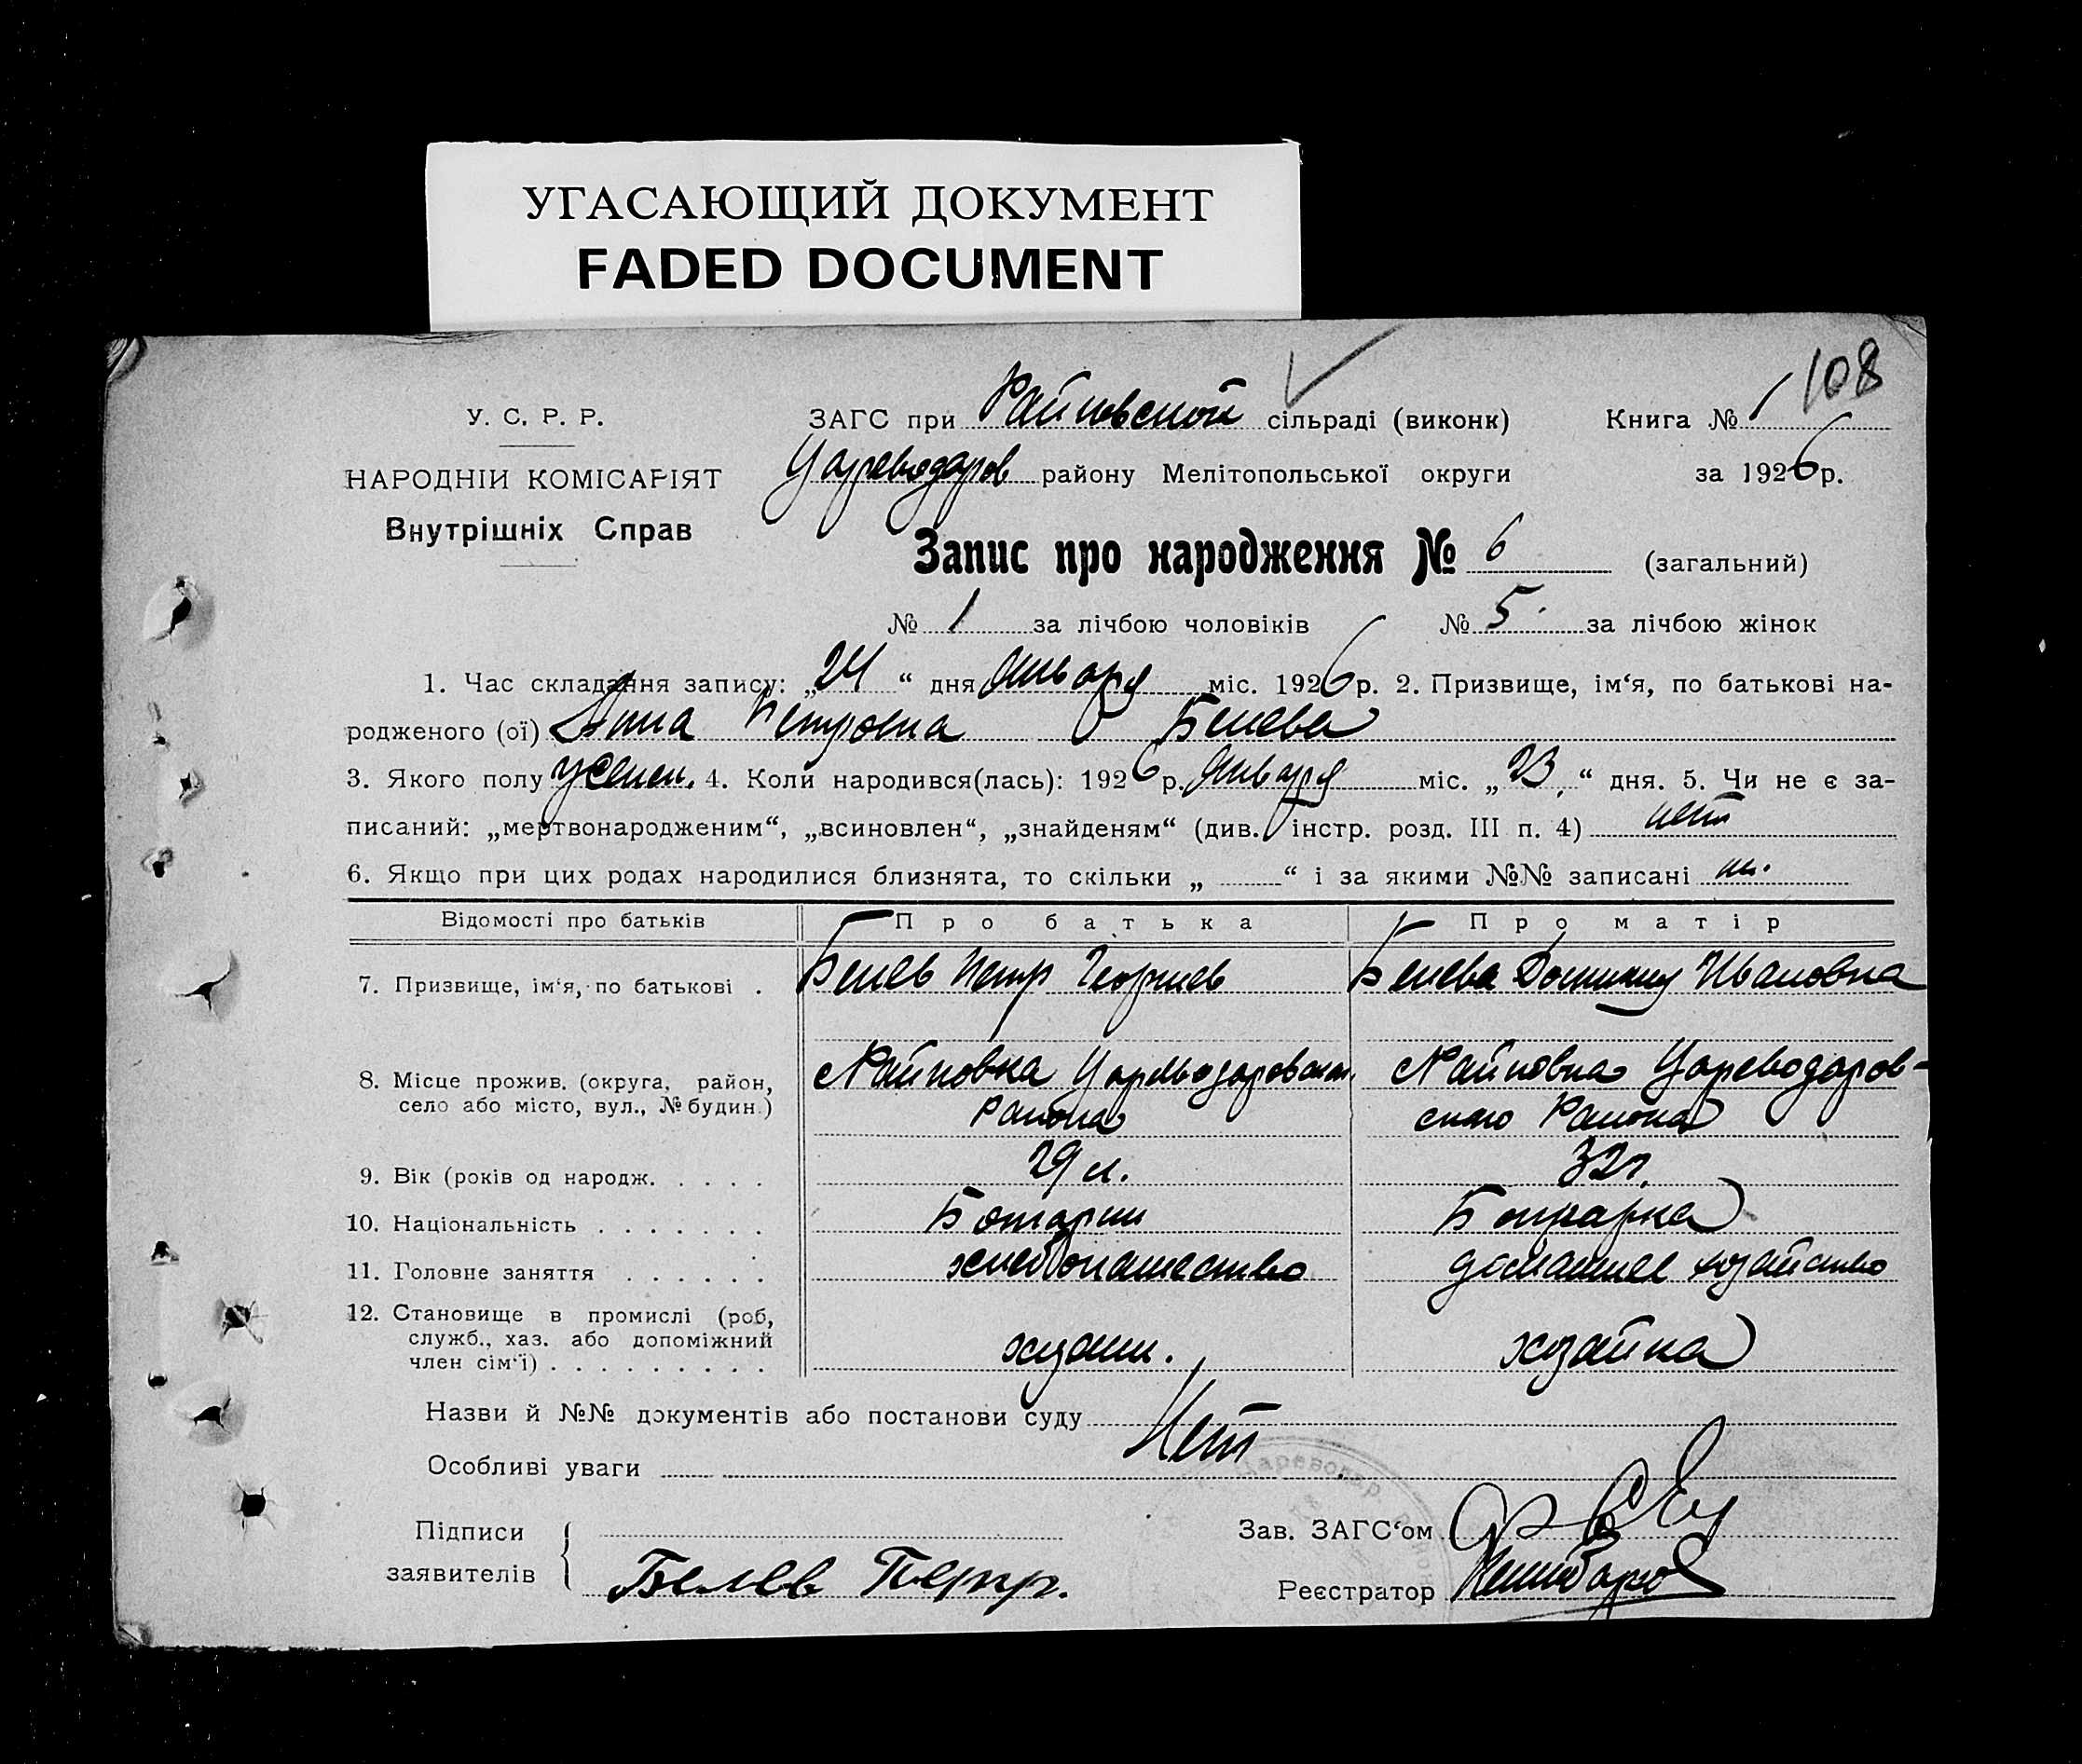 УГАСАЮЩИЙ ДОКУМЕНТ
FADED DOCUMENT
108
У. С. Р. Р.
ЗАГС при Райновской сільраді (виконк)
Книга № 1
НАРОДНІЙ КОМІСАРІЯТ
Цареводаров району Мелітопольської округи
за 1926 р.
Внутрішніх Справ
Запис про народження № 6 (загальний)
№ 1 за лічбою чоловіків № 5 за лічбою жінок
1. Час складання запису: „24“ дня января міс. 1926 р. 2. Призвище, ім‘я, по батькові на-
родженого (ої) Анна Петровна Белева
3. Якого полу женск. 4. Коли народився(лась): 1926 р. января міс. „23“ дня. 5. Чи не є за-
писаний: „мертвонародженим“, „всиновлен“, „знайденям“ (див. інстр. розд. III п. 4) нет
6. Якщо при цих родах народилися близнята, то скільки „ “ і за якими №№ записані
Відомості про батьків Про батька Про матір
7. Призвище, ім‘я, по батькові . Белев Петр Георгиев Белева Ивановна
8. Місце прожив. (округа, район, село або місто, вул., № будин.) Райновка Цареводаровск. Района Райновка Цареводаров-
ского Района
9. Вік (років од народж. . . . . 29 л. 32 г.
10. Національність . . . . . . . Болгарин Болгарка
11. Головне заняття . . . . . . хлебопашество домашнее хозяйство
12. Становище в промислі (роб, служб., хаз. або допоміжний член сім‘ї) . . . . . . . . . хозяин. хозяйка
Назви й №№ документів або постанови суду Нет
Особливі уваги
Підписи
заявителів
Белев Петр.
Зав. ЗАГС‘ом
Реєстратор